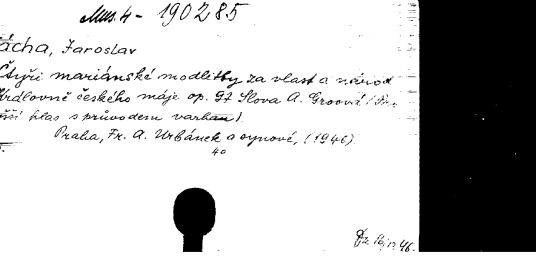 Mus. 4 - 190285
ácha, Jaroslav
Čtyři mariánské modlitby za vlast a národ
českého máje op. 97 Slova A. Groová
hlas s průvodem varhan).
Praha, Fr. A. Urbánek a synové, (1946).
4°